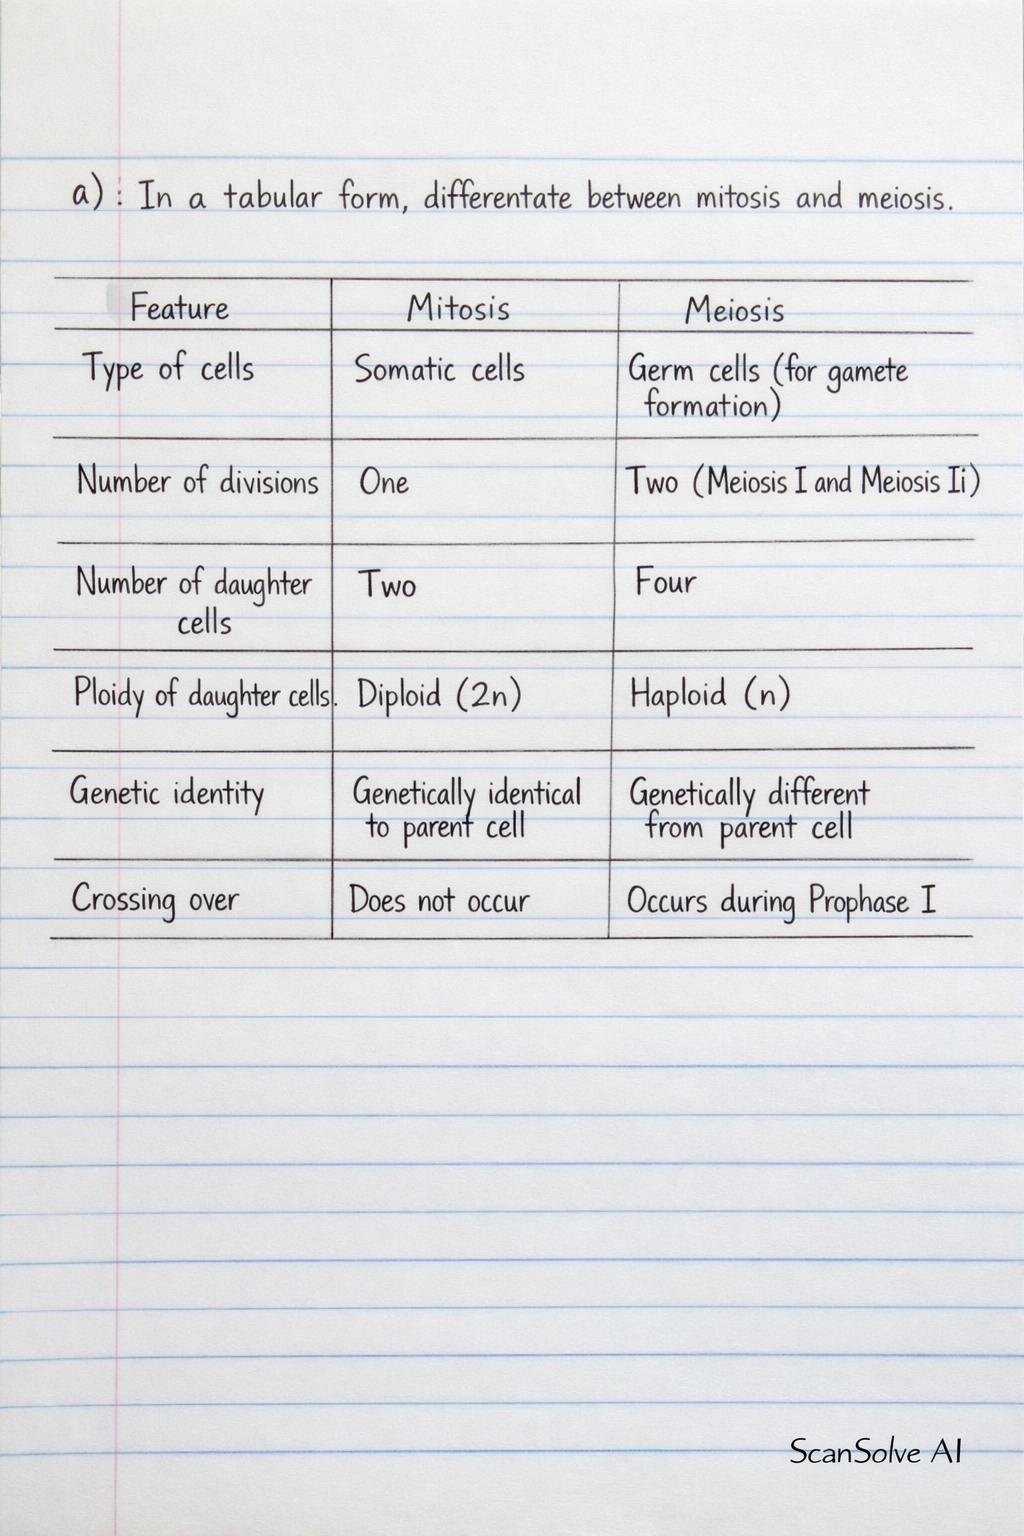 a) : In a tabular form, differentate between mitosis and meiosis.
Feature Mitosis Meiosis
Type of cells Somatic cells Germ cells (for gamete
formation)
Number of divisions One Two (Meiosis I and Meiosis Ii)
Number of daughter Two Four
cells
Ploidy of daughter cells. Diploid (2n) Haploid (n)
Genetic identity Genetically identical Genetically different
to parent cell from parent cell
Crossing over Does not occur Occurs during Prophase I
ScanSolve AI